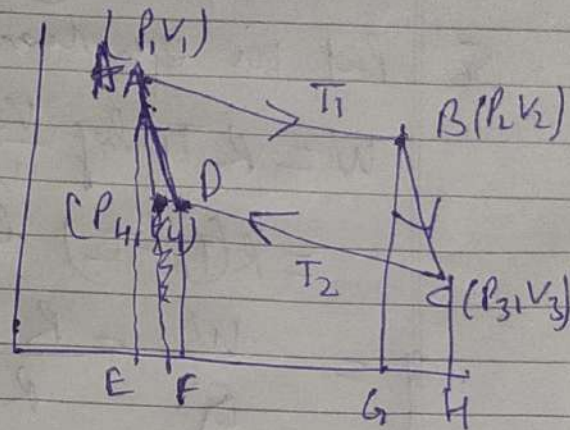 (P₁V₁)
A
T₁
B(P₂V₂)
D
(P₄
T₂
C(P₃,V₃)
E F G H